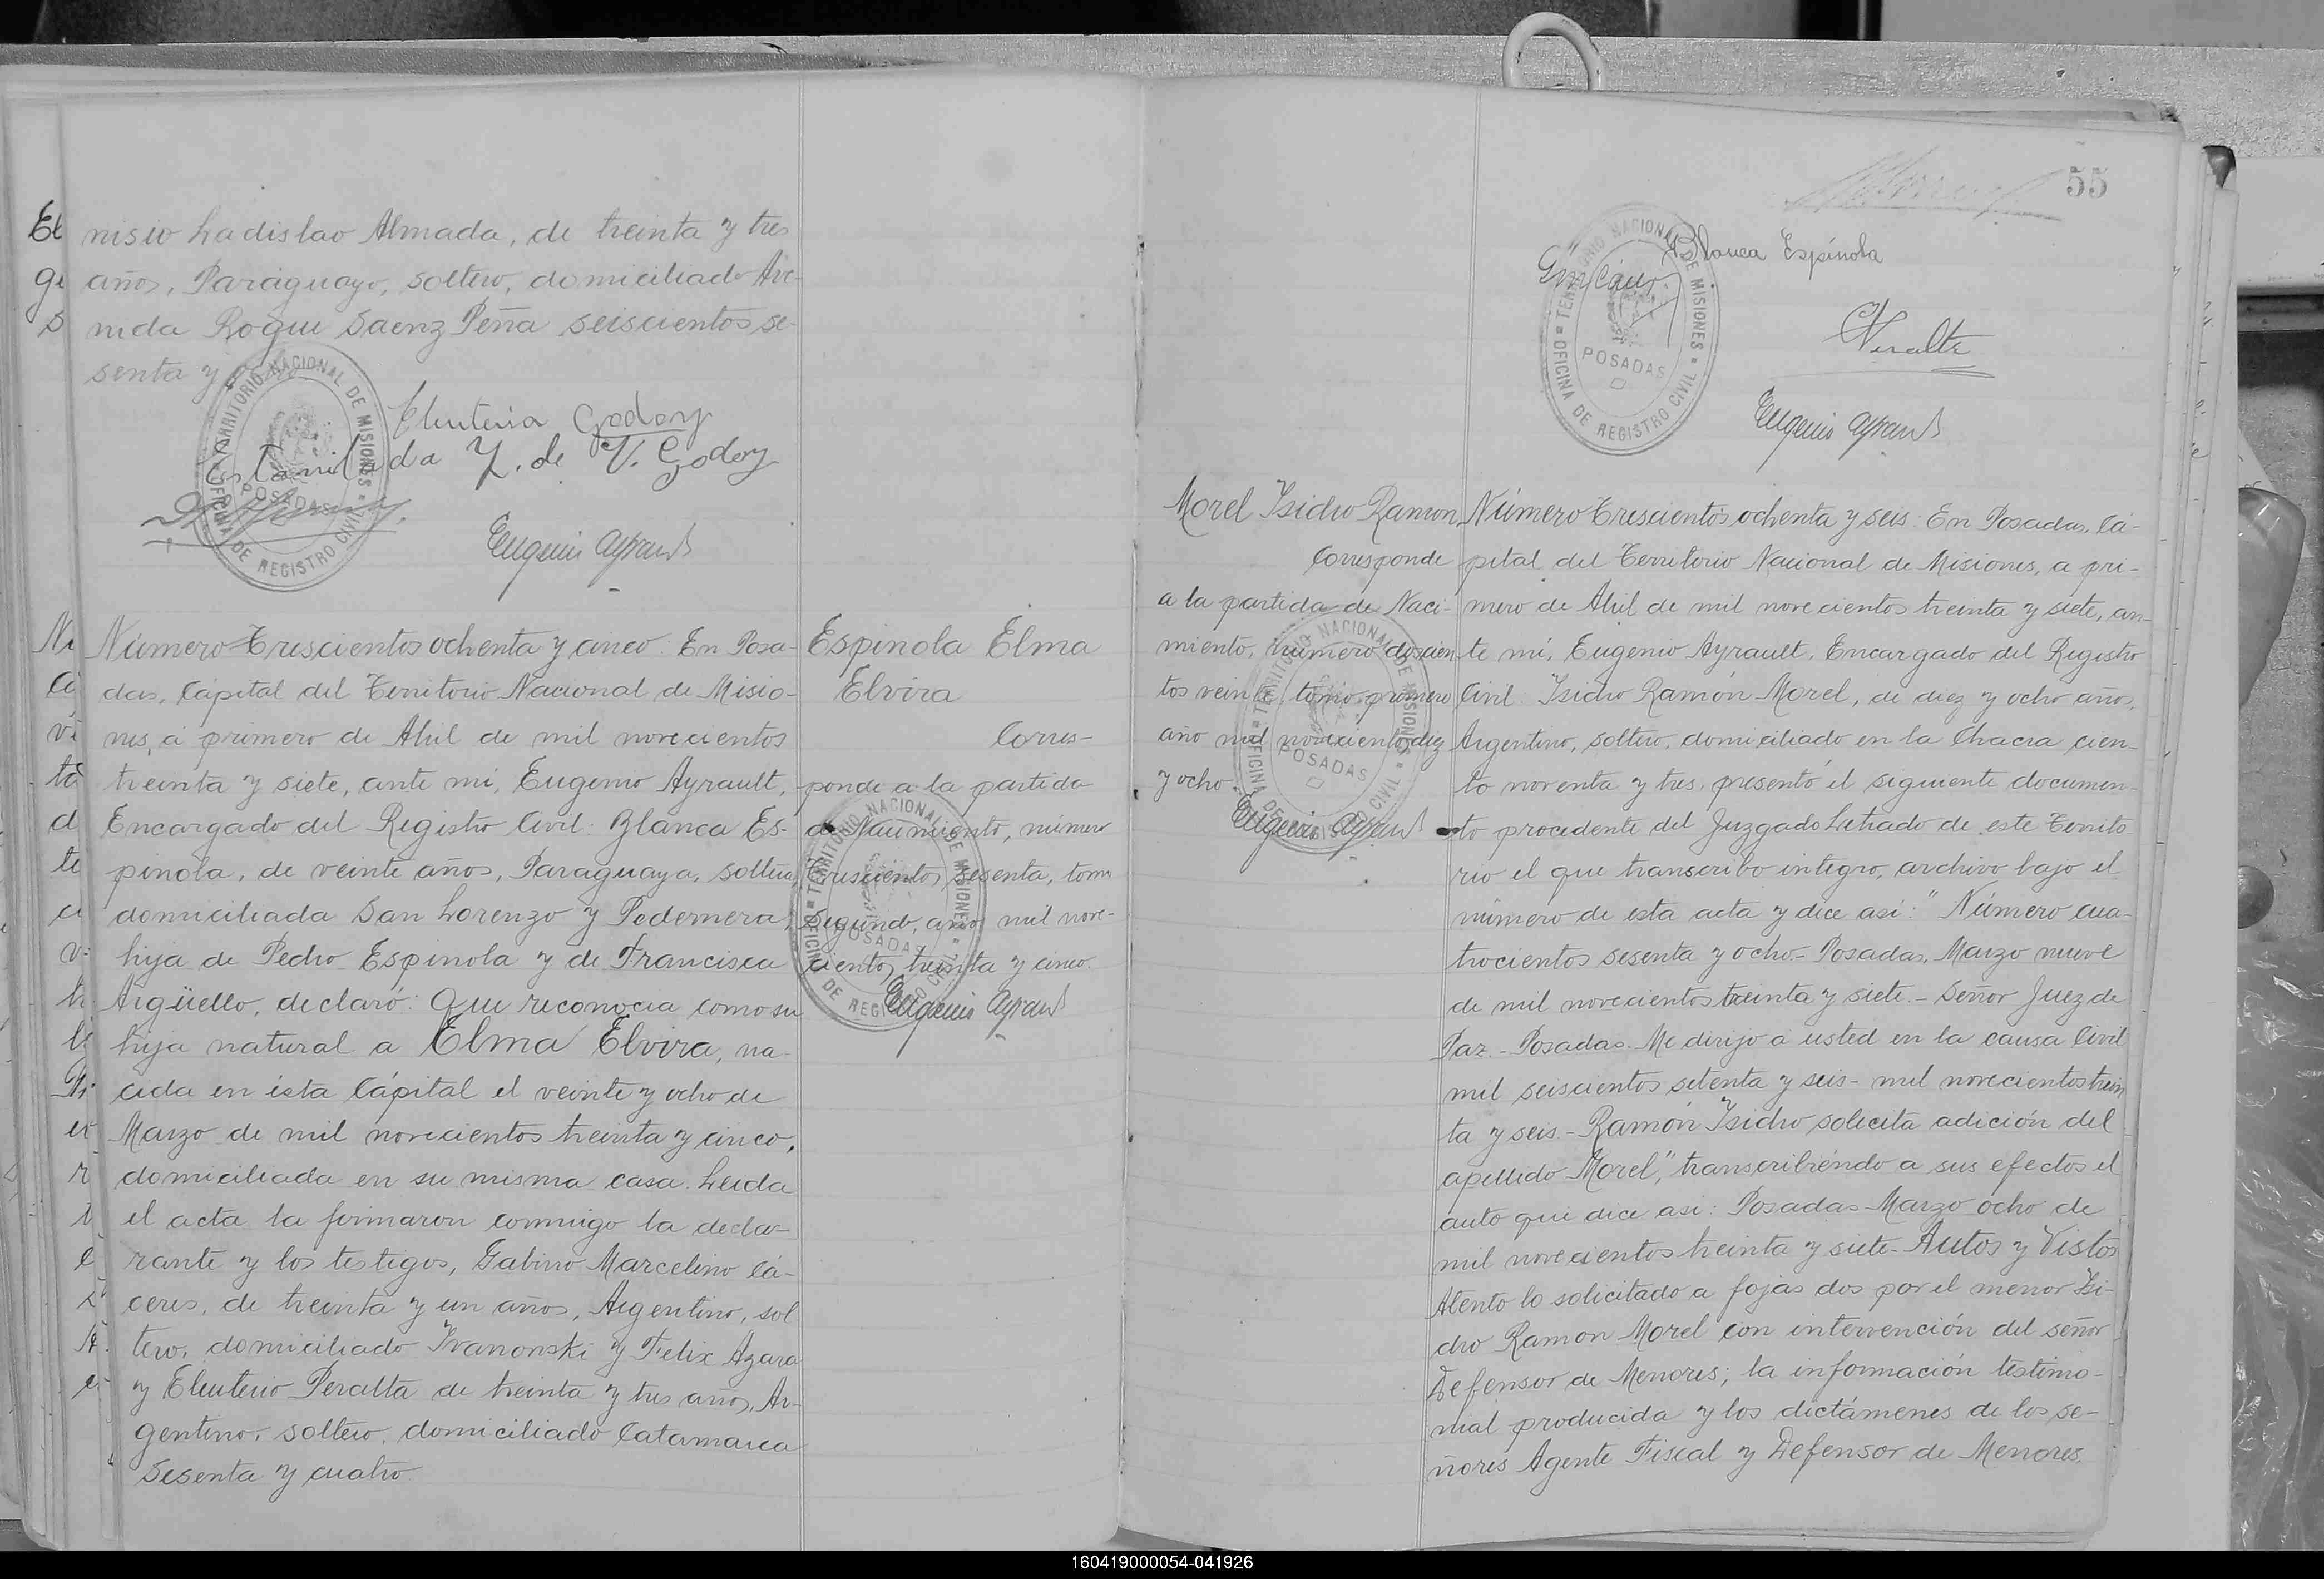 nisio Ladislao Almada, de treinta y tres
años, Paraguayo, soltero, domiciliado Ave-
nida Roque Saenz Peña seiscientos se-
senta y
Eluteria Godoy
Estanilada Y. de V. Godoy
Eugenio Ayrault
TERRITORIO NACIONAL DE MISIONES
POSADAS
OFICINA DE REGISTRO CIVIL
Número Trescientos ochenta y cinco: En Posa-
das, Cápital del Territorio Nacional de Misio-
nes, á primero de Abril de mil novecientos
treinta y siete, ante mi, Eugenio Ayrault,
Encargado del Registro Civil: Blanca Es-
pinola, de veinte años, Paraguaya, soltera,
domiciliada San Lorenzo y Pedernera,
hija de Pedro Espinola y de Francisca
Argüello, declaró: Que reconocia como su
hija natural a Elma Elvira, na
cida en ésta Cápital el veinte y ocho de
Marzo de mil novecientos treinta y cinco,
domiciliada en su misma casa. Leida
el acta la firmaron conmigo la decla-
rante y los testigos, Gabino Marcelino Cá-
ceres, de treinta y un años, Argentino, sol
tero, domiciliado Ivanonski y Felix Azara
y Eluterio Peralta de treinta y tres años, Ar-
gentino, soltero, domiciliado Catamarca
sesenta y cuatro
Espinola Elma
Elvira
Corres-
ponde a la partida
de Nacimiento, número
trescientos sesenta, tomo
segundo, año mil nove-
cientos treinta y cinco.
Eugenio Ayrault
TERRITORIO NACIONAL DE MISIONES
POSADAS
OFICINA DE REGISTRO CIVIL
55
Blanca Espínola
Peralta
Eugenio Ayrault
TERRITORIO NACIONAL DE MISIONES
POSADAS
OFICINA DE REGISTRO CIVIL
Morel Isidro Ramon.
Corresponde
a la partida de Naci-
miento, número doscien-
tos veinte, tomo primero
año mil novecientos diez
y ocho.
Eugenio Ayrault
TERRITORIO NACIONAL DE MISIONES
POSADAS
OFICINA DE REGISTRO CIVIL
Número Trescientos ochenta y seis: En Posadas, Cá-
pital del Territorio Nacional de Misiones, a pri-
mero de Abril de mil novecientos treinta y siete, an-
te mi, Eugenio Ayrault, Encargado del Registro
Civil: Isidro Ramón Morel, de diez y ocho años,
Argentino, soltero, domiciliado en la Chacra cien-
to noventa y tres, presentó el siguiente documen-
to procedente del Juzgado Letrado de este Territo
rio el que transcribo integro, archivo bajo el
número de esta acta y dice asi: " Número cua-
trocientos sesenta y ocho.- Posadas, Marzo nueve
de mil novecientos treinta y siete.- Señor Juez de
Paz.- Posadas. Me dirijo a usted en la causa Civil
mil seiscientos setenta y seis- mil novecientos trein
ta y seis.- Ramón Isidro solicita adición del
apellido Morel", transcribiéndo a sus efectos el
auto que dice asi: Posadas Marzo ocho de
mil novecientos treinta y siete- Autos y Vistos
Atento lo solicitado a fojas dos por el menor Isi-
dro Ramon Morel con intervención del señor
Defensor de Menores; la información testimo-
nial producida y los dictámenes de los se-
ñores Agente Fiscal y Defensor de Menores.
160419000054-041926